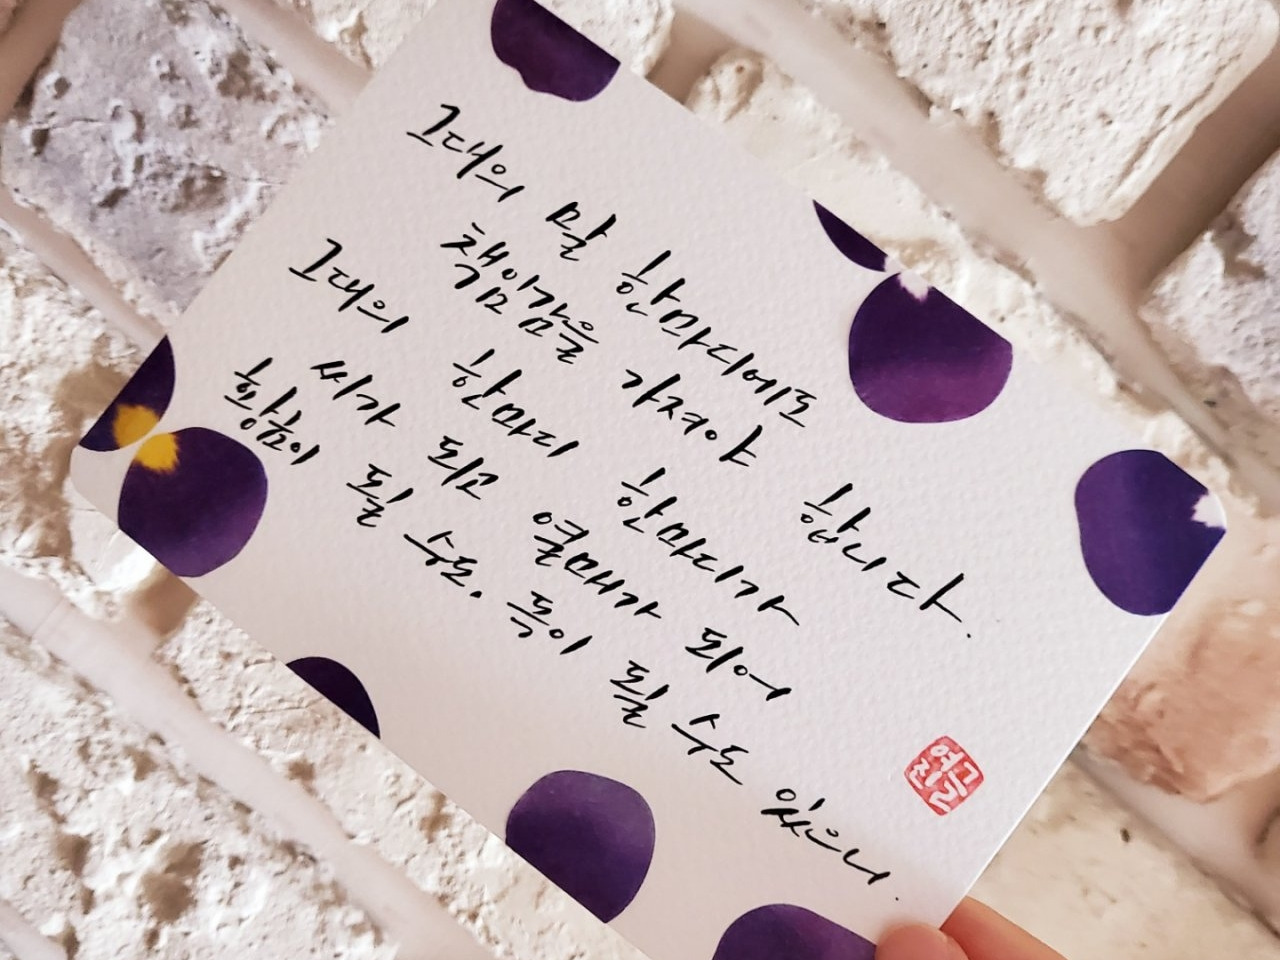 그대의 말 한마디에도
책임감을 가져야 합니다.
그대의 한마디 한마디가
씨가 되고 열매가 되어
황금이 될 수도. 독이 될 수도 있으니.
여진글